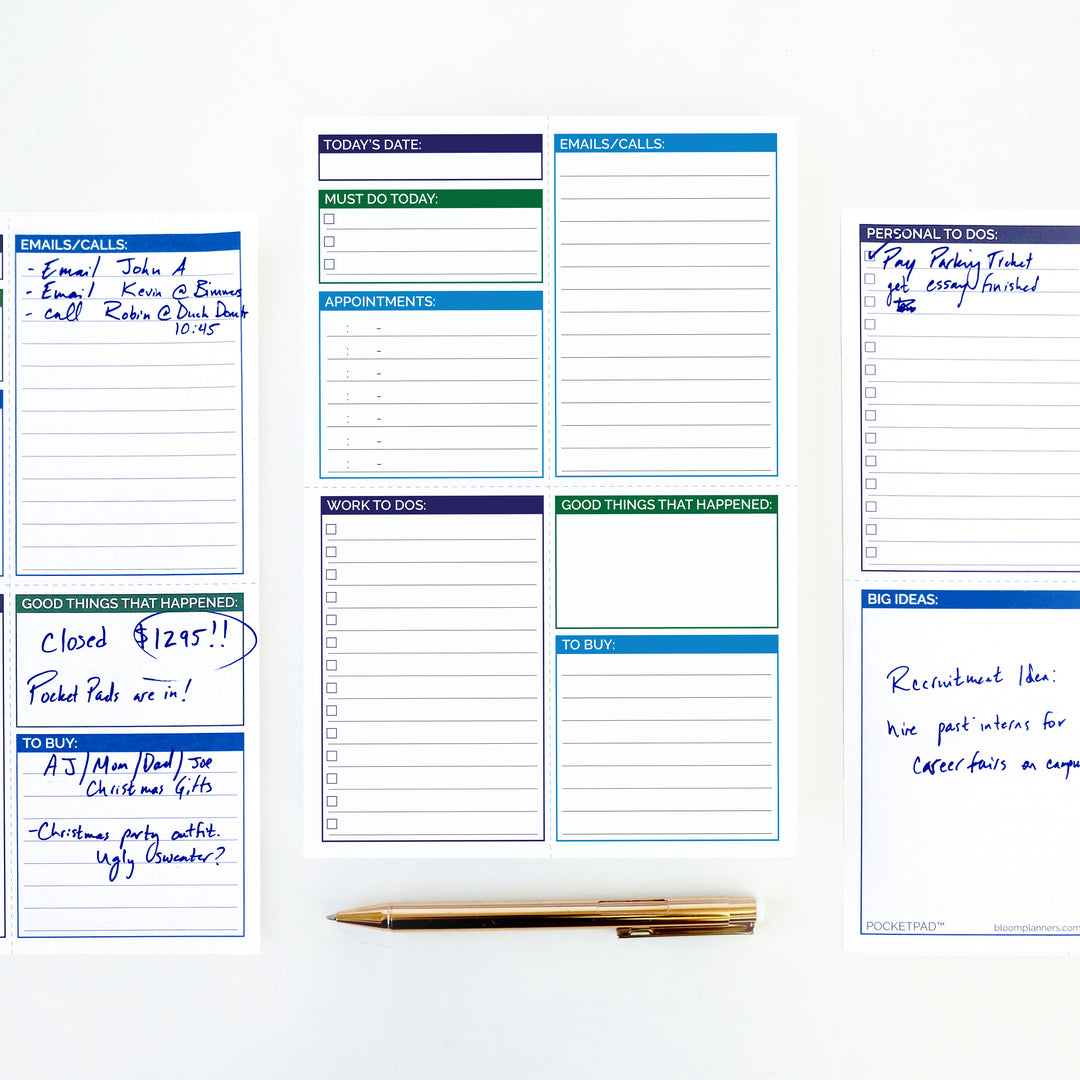 EMAILS/CALLS:
- Email John A
- Email Kevin @ Bimmers
- call Robin @ Duck Donut
10:45
GOOD THINGS THAT HAPPENED:
Closed $1295!!
Pocket Pads are in!
TO BUY:
AJ/Mom/Dad/Joe
Christmas Gifts
-Christmas party outfit.
Ugly sweater?
TODAY'S DATE:
MUST DO TODAY:
APPOINTMENTS:
: -
: -
: -
: -
: -
: -
: -
EMAILS/CALLS:
WORK TO DOS:
GOOD THINGS THAT HAPPENED:
TO BUY:
PERSONAL TO DOS:
Pay Parking Ticket
get essay finished
BIG IDEAS:
Recruitment Idea:
hire past interns for
career fairs on campu
POCKETPAD™
bloomplanners.com